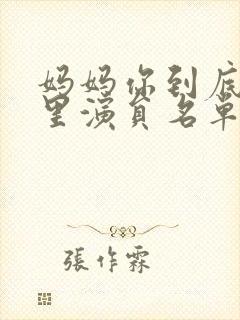 妈妈你到底
里演员名单
張作霖